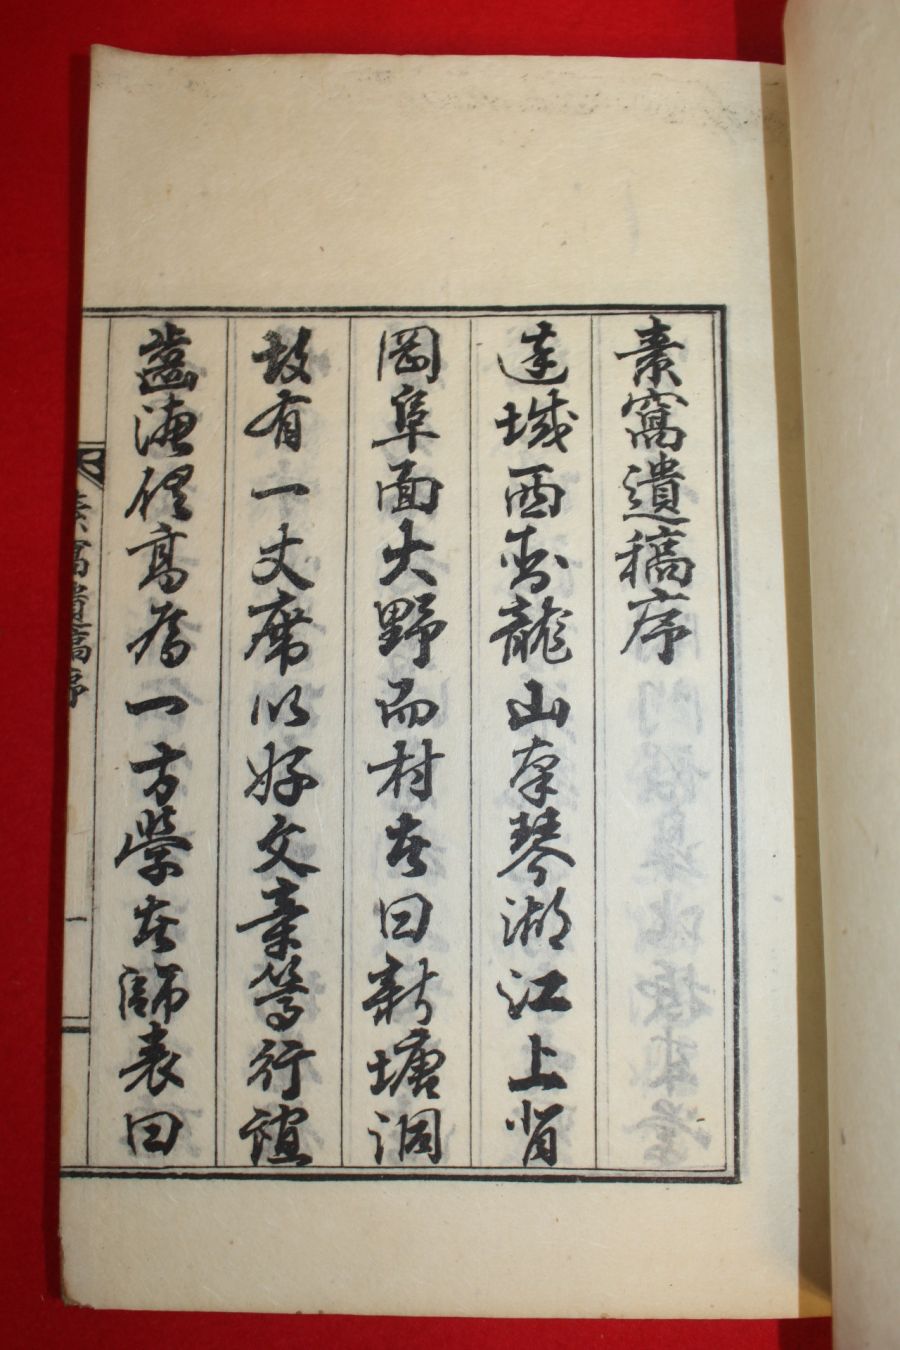 素窩遺稿序
達城西卧龍山南琴湖江上背
岡阜面大野而村者曰新塘洞
故有一丈席以好文章篤行誼
齒德俱高爲一方學者師表曰
素窩遺稿序
一